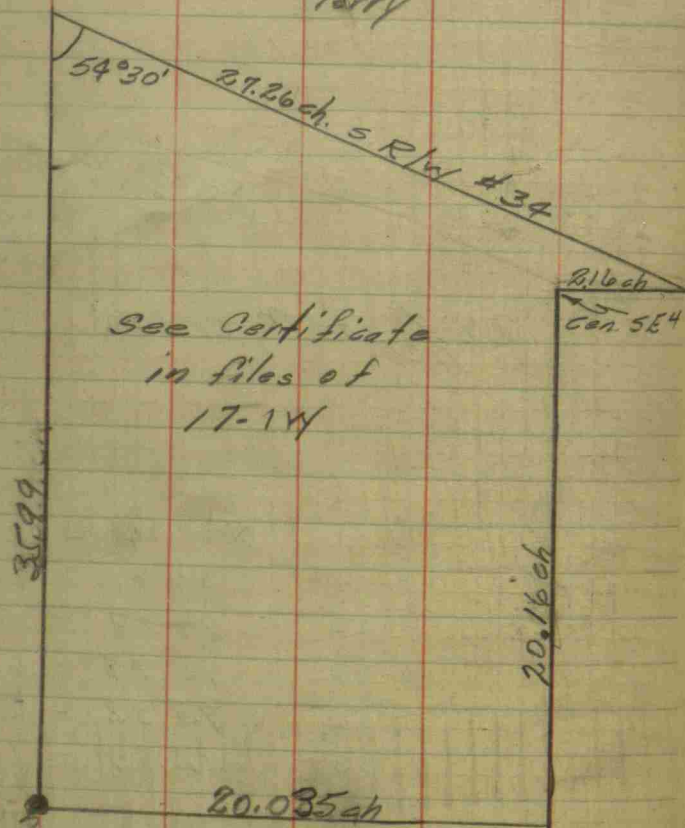 54°30'
27.26 ch. S R/W #34
2.16 ch
Cen. SE4
See Certificate
in files of
17-1W
35.99
20.16 ch
20.035 ch